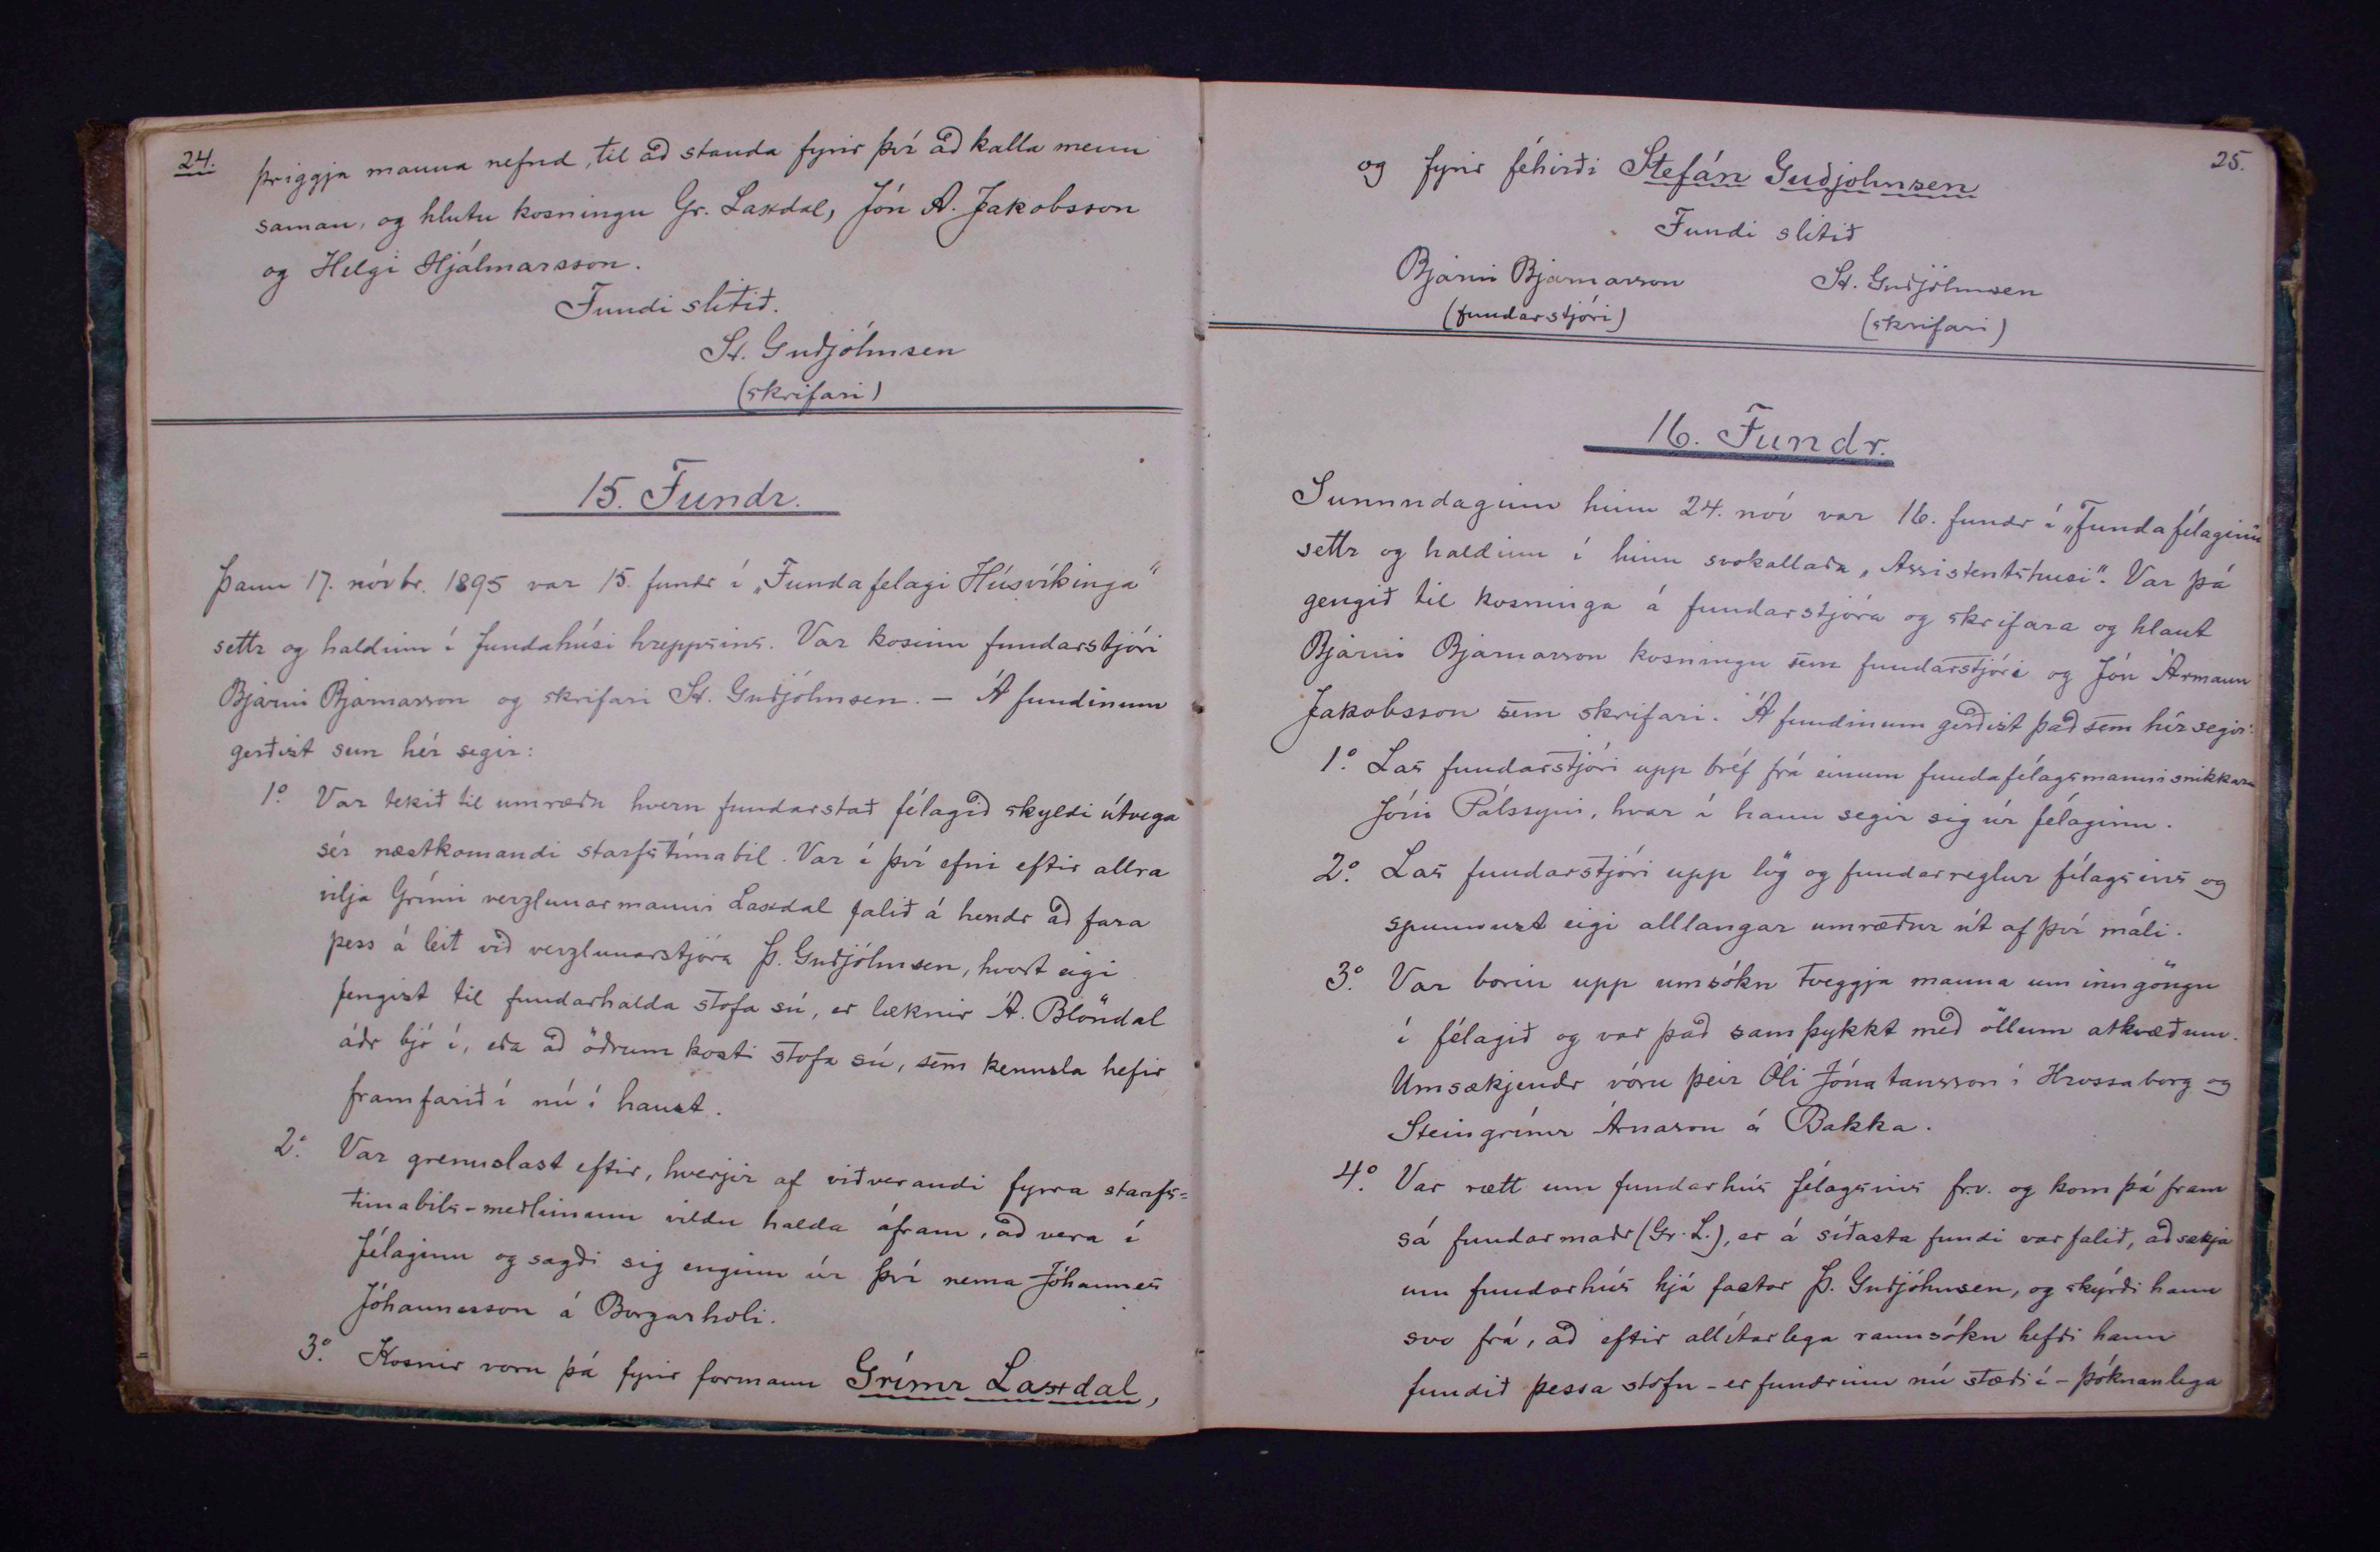 24.
þriggja manna nefnd, til að standa fyrir því að kalla menn
saman, og hlutu kosningu Gr. Laxdal, Jón A. Jakobsson
og Helgi Hjálmarsson.
Fundi slitið.
St. Guðjohnsen
(skrifari)
15. Fundr.
Þann 17. nóvbr. 1895 var 15. fundr í „Fundafelagi Húsvíkinga“
settr og haldinn í fundahúsi hreppsins. Var kosinn fundarstjóri
Bjarni Bjarnarson og skrifari St. Guðjóhnsen. – Á fundinum
gerðist sem hér segir:
1.° Var tekið til umræðu hvern fundarstað félagið skyldi útvega
sér næstkomandi starfstímabil. Var í því efni eftir allra
vilja Grími verzlunarmanni Laxdal falið á hendr að fara
þess á leit við verzlunarstjóra Þ. Guðjóhnsen, hvort eigi
fengist til fundarhalda stofa sú, er læknir Á. Blöndal
áðr bjó í, eða að öðrum kosti stofa sú, sem kennsla hefir
framfarið í nú í haust.
2.° Var grennslast eftir, hverjir af viðverandi fyrra starfs=
tímabils-meðlimum vildu halda áfram, að vera í
félaginu og sagði sig enginn úr því nema Jóhannes
Jóhannesson á Borgarholi.
3.° Kosnir voru þá fyrir formann Grímr Laxdal,
25.
og fyrir féhirði Stefán Guðjohnsen
Fundi slitið
Bjarni Bjarnarson St. Guðjóhnsen
(fundarstjóri) (skrifari)
16. Fundr.
Sunnndaginn hinn 24. nóv var 16. fundr í „Fundafélaginu
settr og haldinn í hinu svokallaða „Assistentshusi“. Var þá
gengið til kosninga á fundarstjóra og skrifara og hlaut
Bjarni Bjarnarson kosningu sem fundarstjóri og Jón Ármann
Jakobsson sem skrifari. Á fundinum gerðist það sem hér segir:
1.° Las fundarstjóri upp bréf frá einum fundafélagsmanni snikkara
Jóni Pálssyni, hvar í hann segir sig úr félaginu.
2.° Las fundarstjóri upp lög og fundarreglur félagsins og
spunnust eigi alllangar umræður út af því máli.
3.° Var borin upp umsókn tveggja manna um inngöngu
í félagið og var það samþykkt með öllum atkvæðum.
Umsækjendr vóru þeir Óli Jónatansson í Hrossaborg og
Steingrímr Árnason á Bakka.
4.° Var rætt um fundarhús félagsins fr.v. og kom þá fram
sá fundarmaðr (Gr. L.), er á síðasta fundi var falið, að sækja
um fundarhús hjá factor Þ. Guðjóhnsen, og skýrði hann
svo frá, að eftir allítarlega rannsókn hefði hann
fundið þessa stofu – er fundrinn nú stæði í – þóknanlega